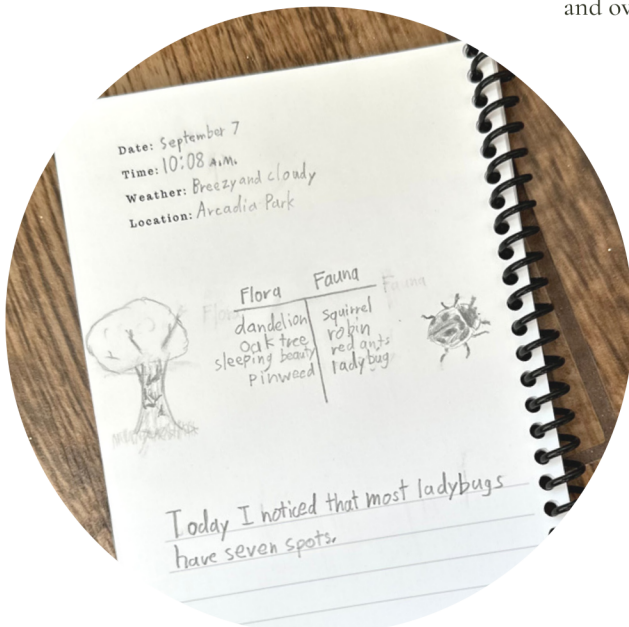 and ov
Date: September 7
Time: 10:08 A.M.
Weather: Breezy and cloudy
Location: Arcadia Park
Flora Fauna Fauna
Flora
dandelion squirrel
oak tree robin
sleeping beauty red ants
pinweed ladybug
Today I noticed that most ladybugs
have seven spots.